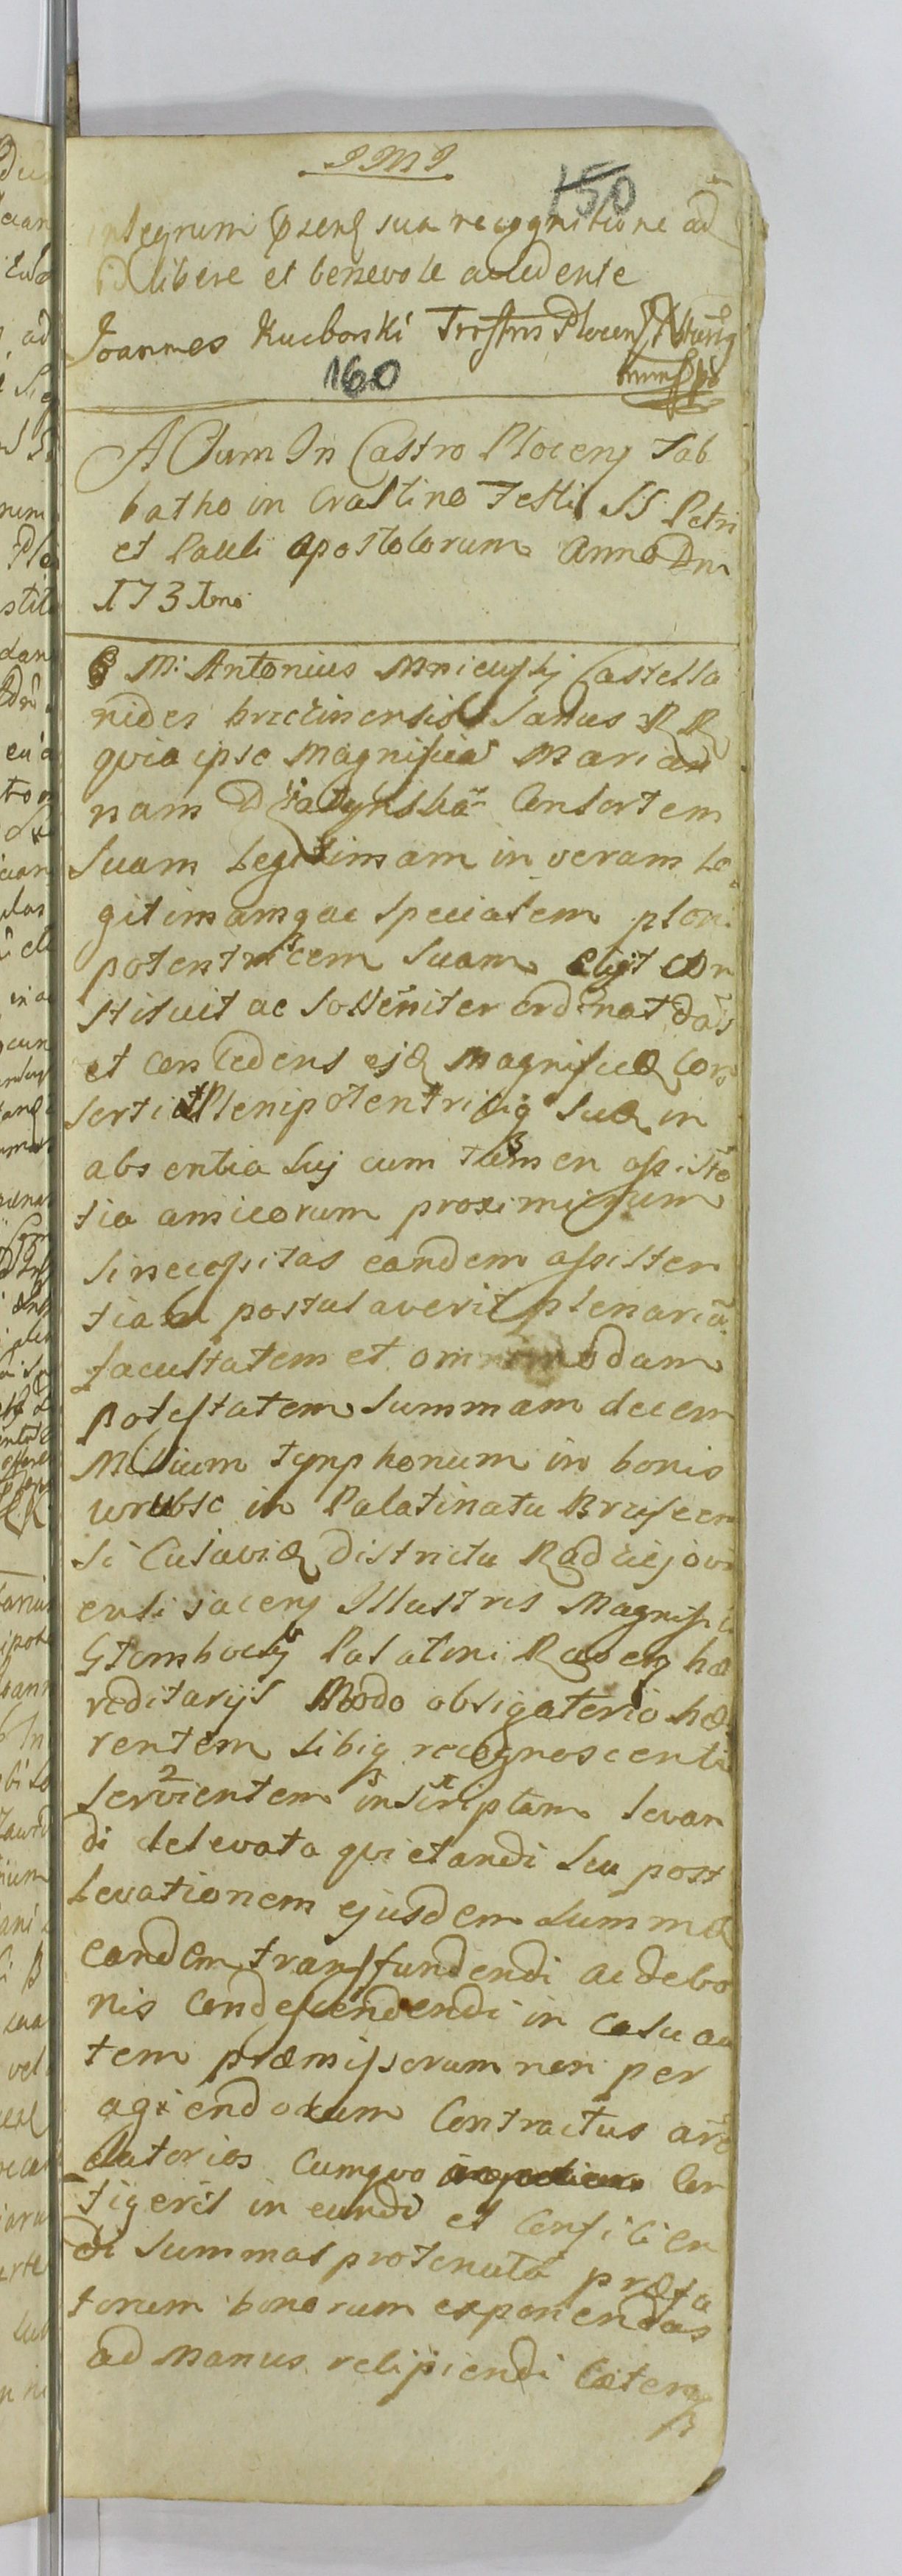 JMJ
150
integrum sua recognitione ad
id libere et benevole accedente
Joannes Kucborski
160
Actum In Castro Plocen Sab
batho in Crastino Festi SS Petri
et Pauli Apostolorum Anno Dni
1731mo
M: Antonius Mniewskj Castella
nides brzctinensis Sanus R R
quia ipse Magnificā Marian
nam Działynskā Consortem
Suam Legitimam in veram Le
gitimamque Specialem pleni
potentricem Suam eligit con
stituit ac Sollēniter ordinat dās
et concedens ejꝫ Magnificæ Con
sorti et Plenipotentriciq Suæ in
absentia Suj cum tamen assistē
tia amicorum proximiorum
Si necessitas eandem assisten
tiam postulaverit plenariā
facultatem et omnimodam
potestatem Summam decem
Millium tymphonum in bonis
wrubsc in Palatinatu Brzescen
si Cujaviæ districtu Radziejovi
ensi jacen Illustris Magnifici
Gtembockj Palatini Raven hæ
reditarijs Modo obligatorio hæ
rentem Sibiq recognoscenti
Servientem inscriptam levan
di de levata quietandi Seu post
Levationem ejusdem Summæ
eandem transfundendi ac de bo
nis Condescendendi in casu au
tem præmissorum non per
agendorum Contractus arē
datorios Cumquo Con
tigerit in eundi et Conficien
di Summas pro tenuta præfa
torum bonorum exponendas
ad manus recipiendi Cætera